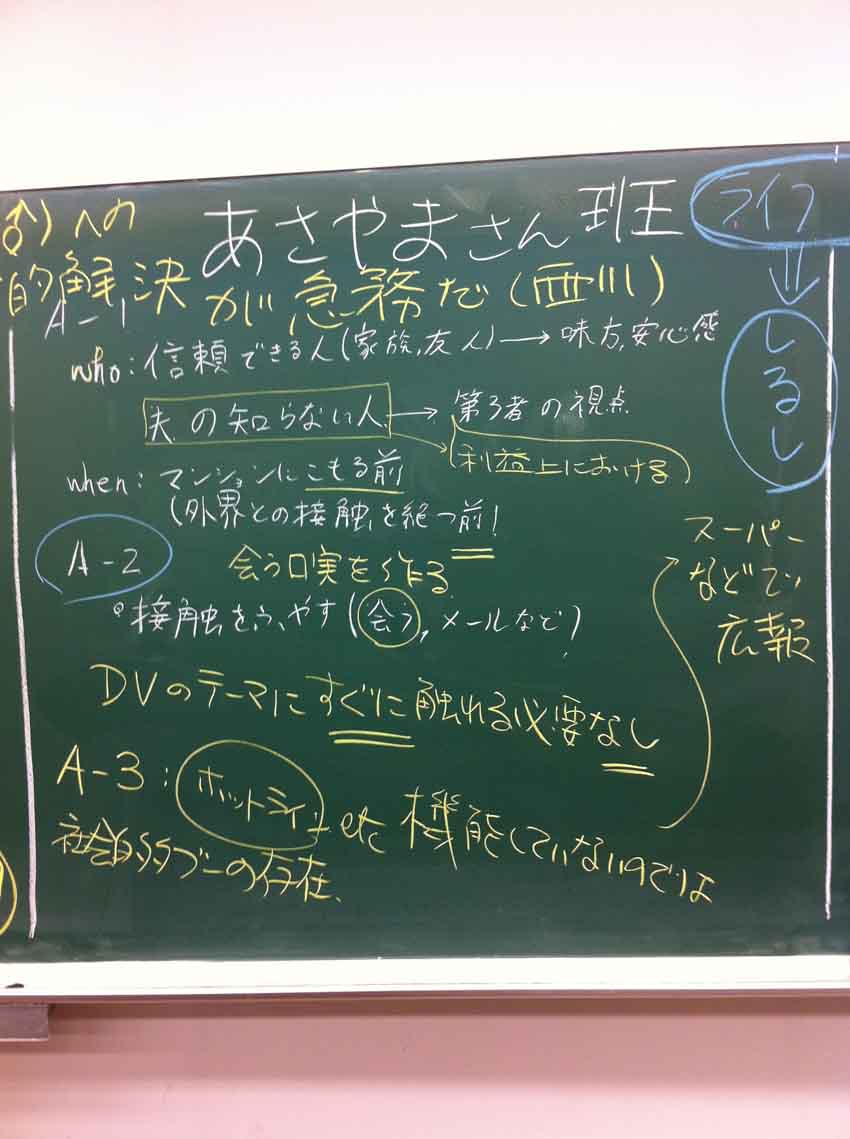 ♂)への
あさやまさん班
ライフ
⇓
しるし
的解決が急務だ(西川)
A-1
who:信頼できる人(家族,友人)→味方,安心感
夫の知らない人→第3者の視点
(利益上における)
when:マンションにこもる前
(外界との接触を絶つ前!
A-2
会う口実を作る
・接触をふやす(会う,メールなど)
DVのテーマにすぐに触れる必要なし
スーパー
などで
広報
A-3:ホットライン etc 機能していないのでは
社会的タブーの存在